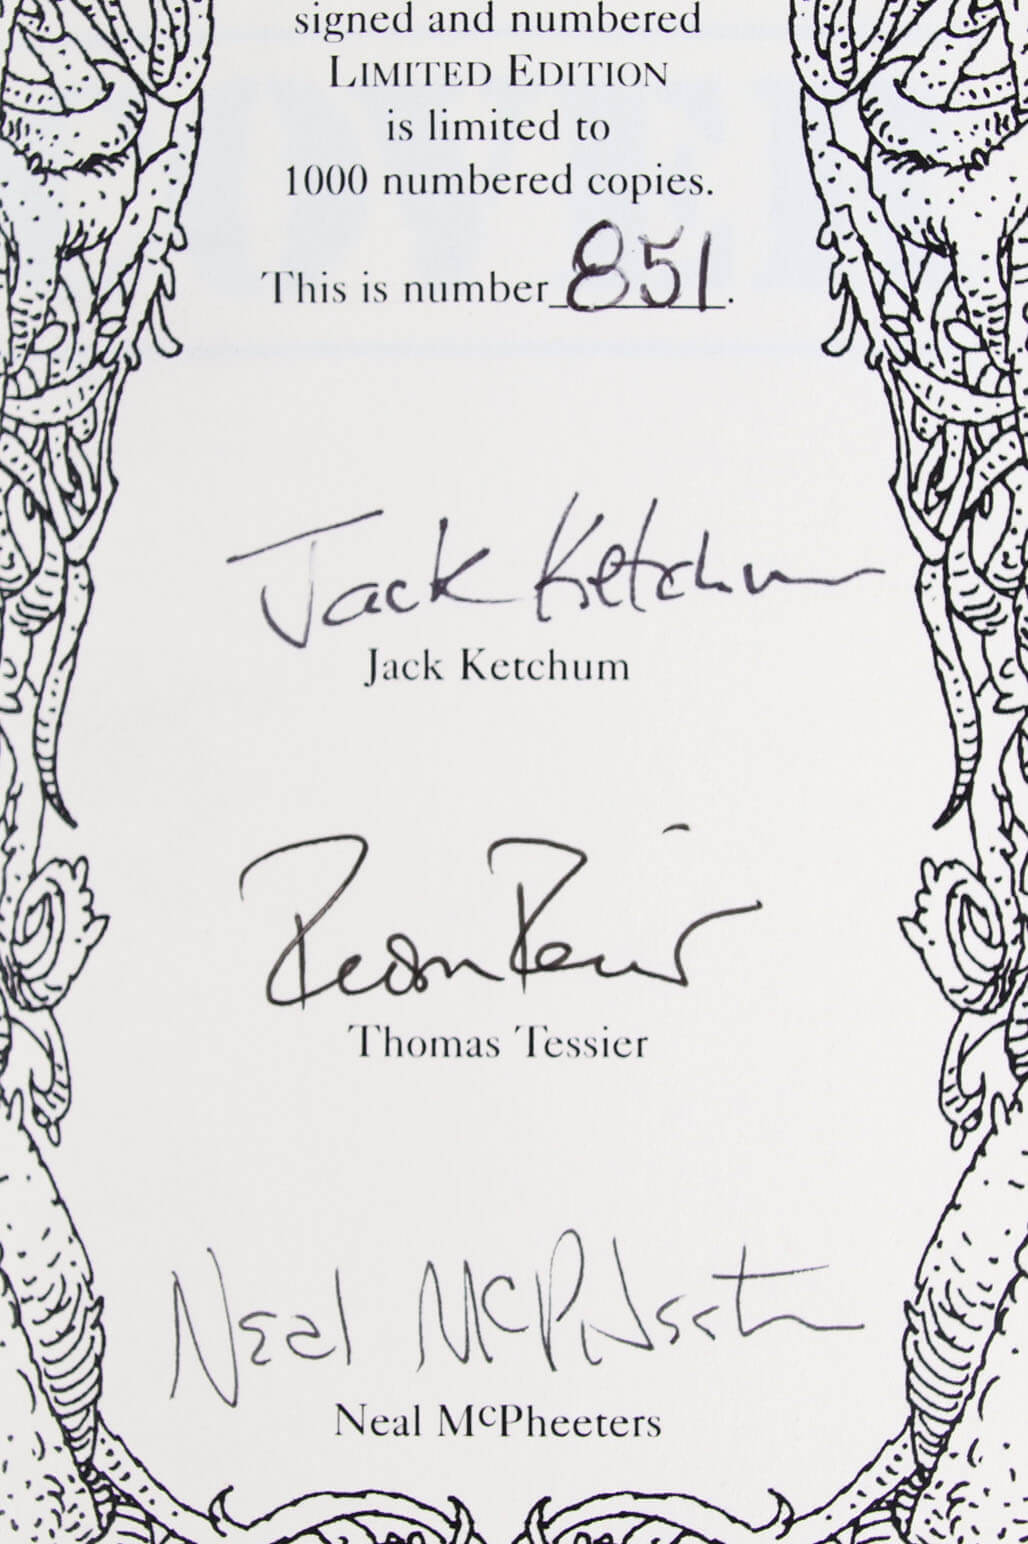 signed and numbered
LIMITED EDITION
is limited to
1000 numbered copies.
This is number 851.
Jack Ketchum
Jack Ketchum
Thomas Tessier
Neal McPheeters
Neal McPheeters